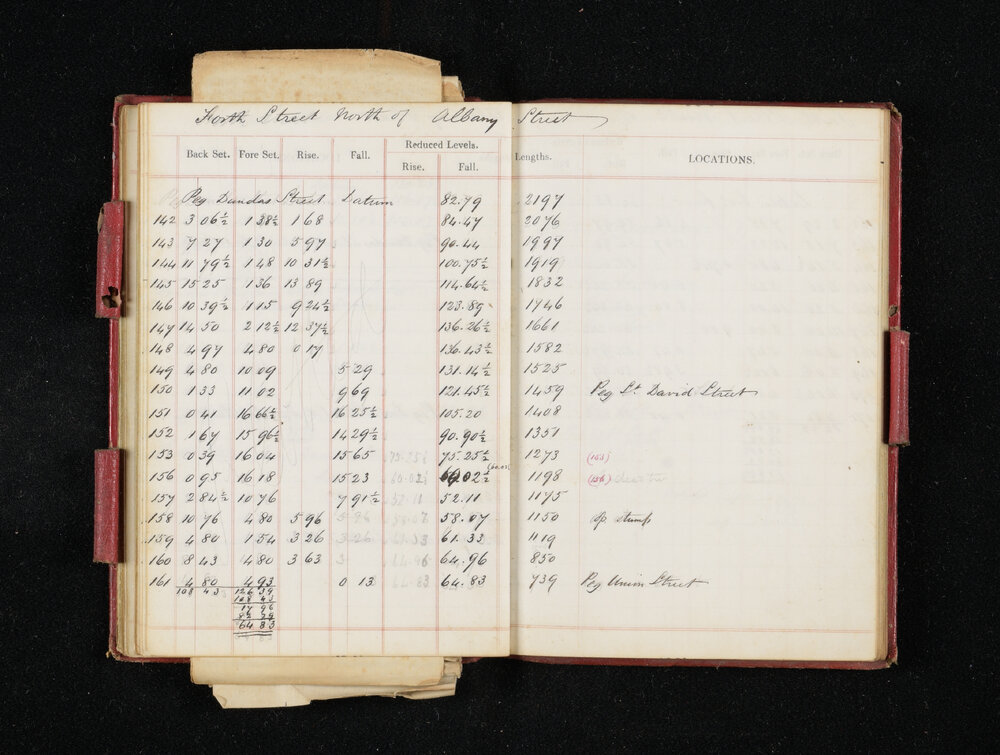 Forth Street North of Albany Street
Back Set. Fore Set. Rise. Fall. Reduced Levels. Rise. Fall. Lengths. LOCATIONS.
Peg Dundas Street Datum 82.79 2197
142 3 06½ 1 38½ 1 68 84.47 2076
143 7 27 1 30 5 97 90.44 1997
144 11 79½ 1 48 10 31½ 100.75½ 1919
145 15 25 1 36 13 89 114.64½ 1832
146 10 39½ 1 15 9 24½ 123.89 1746
147 14 50 2 12½ 12 37½ 136.26½ 1661
148 4 97 4 80 0 17 136.43½ 1582
149 4 80 10 09 5 29 131.14½ 1525
150 1 33 11 02 9 69 121.45½ 1459 Peg St. David Street
151 0 41 16 66½ 16 25½ 105.20 1408
152 1 67 15 96½ 14 29½ 90.90½ 1351
153 0 39 16 04 15 65 75.25½ 1273 (153)
156 0 95 16 18 15 23 60.02½ 1198 (156)
157 2 84½ 10 76 7 91½ 52.11 1175
158 10 76 4 80 5 96 58.07 1150 Op Stump
159 4 80 1 54 3 26 61.33 1119
160 8 43 4 80 3 63 64.96 850
161 4 80 4 93 0 13 64.83 739 Peg Union Street
108 43 126 39
108 43
17 96
82 79
64 83